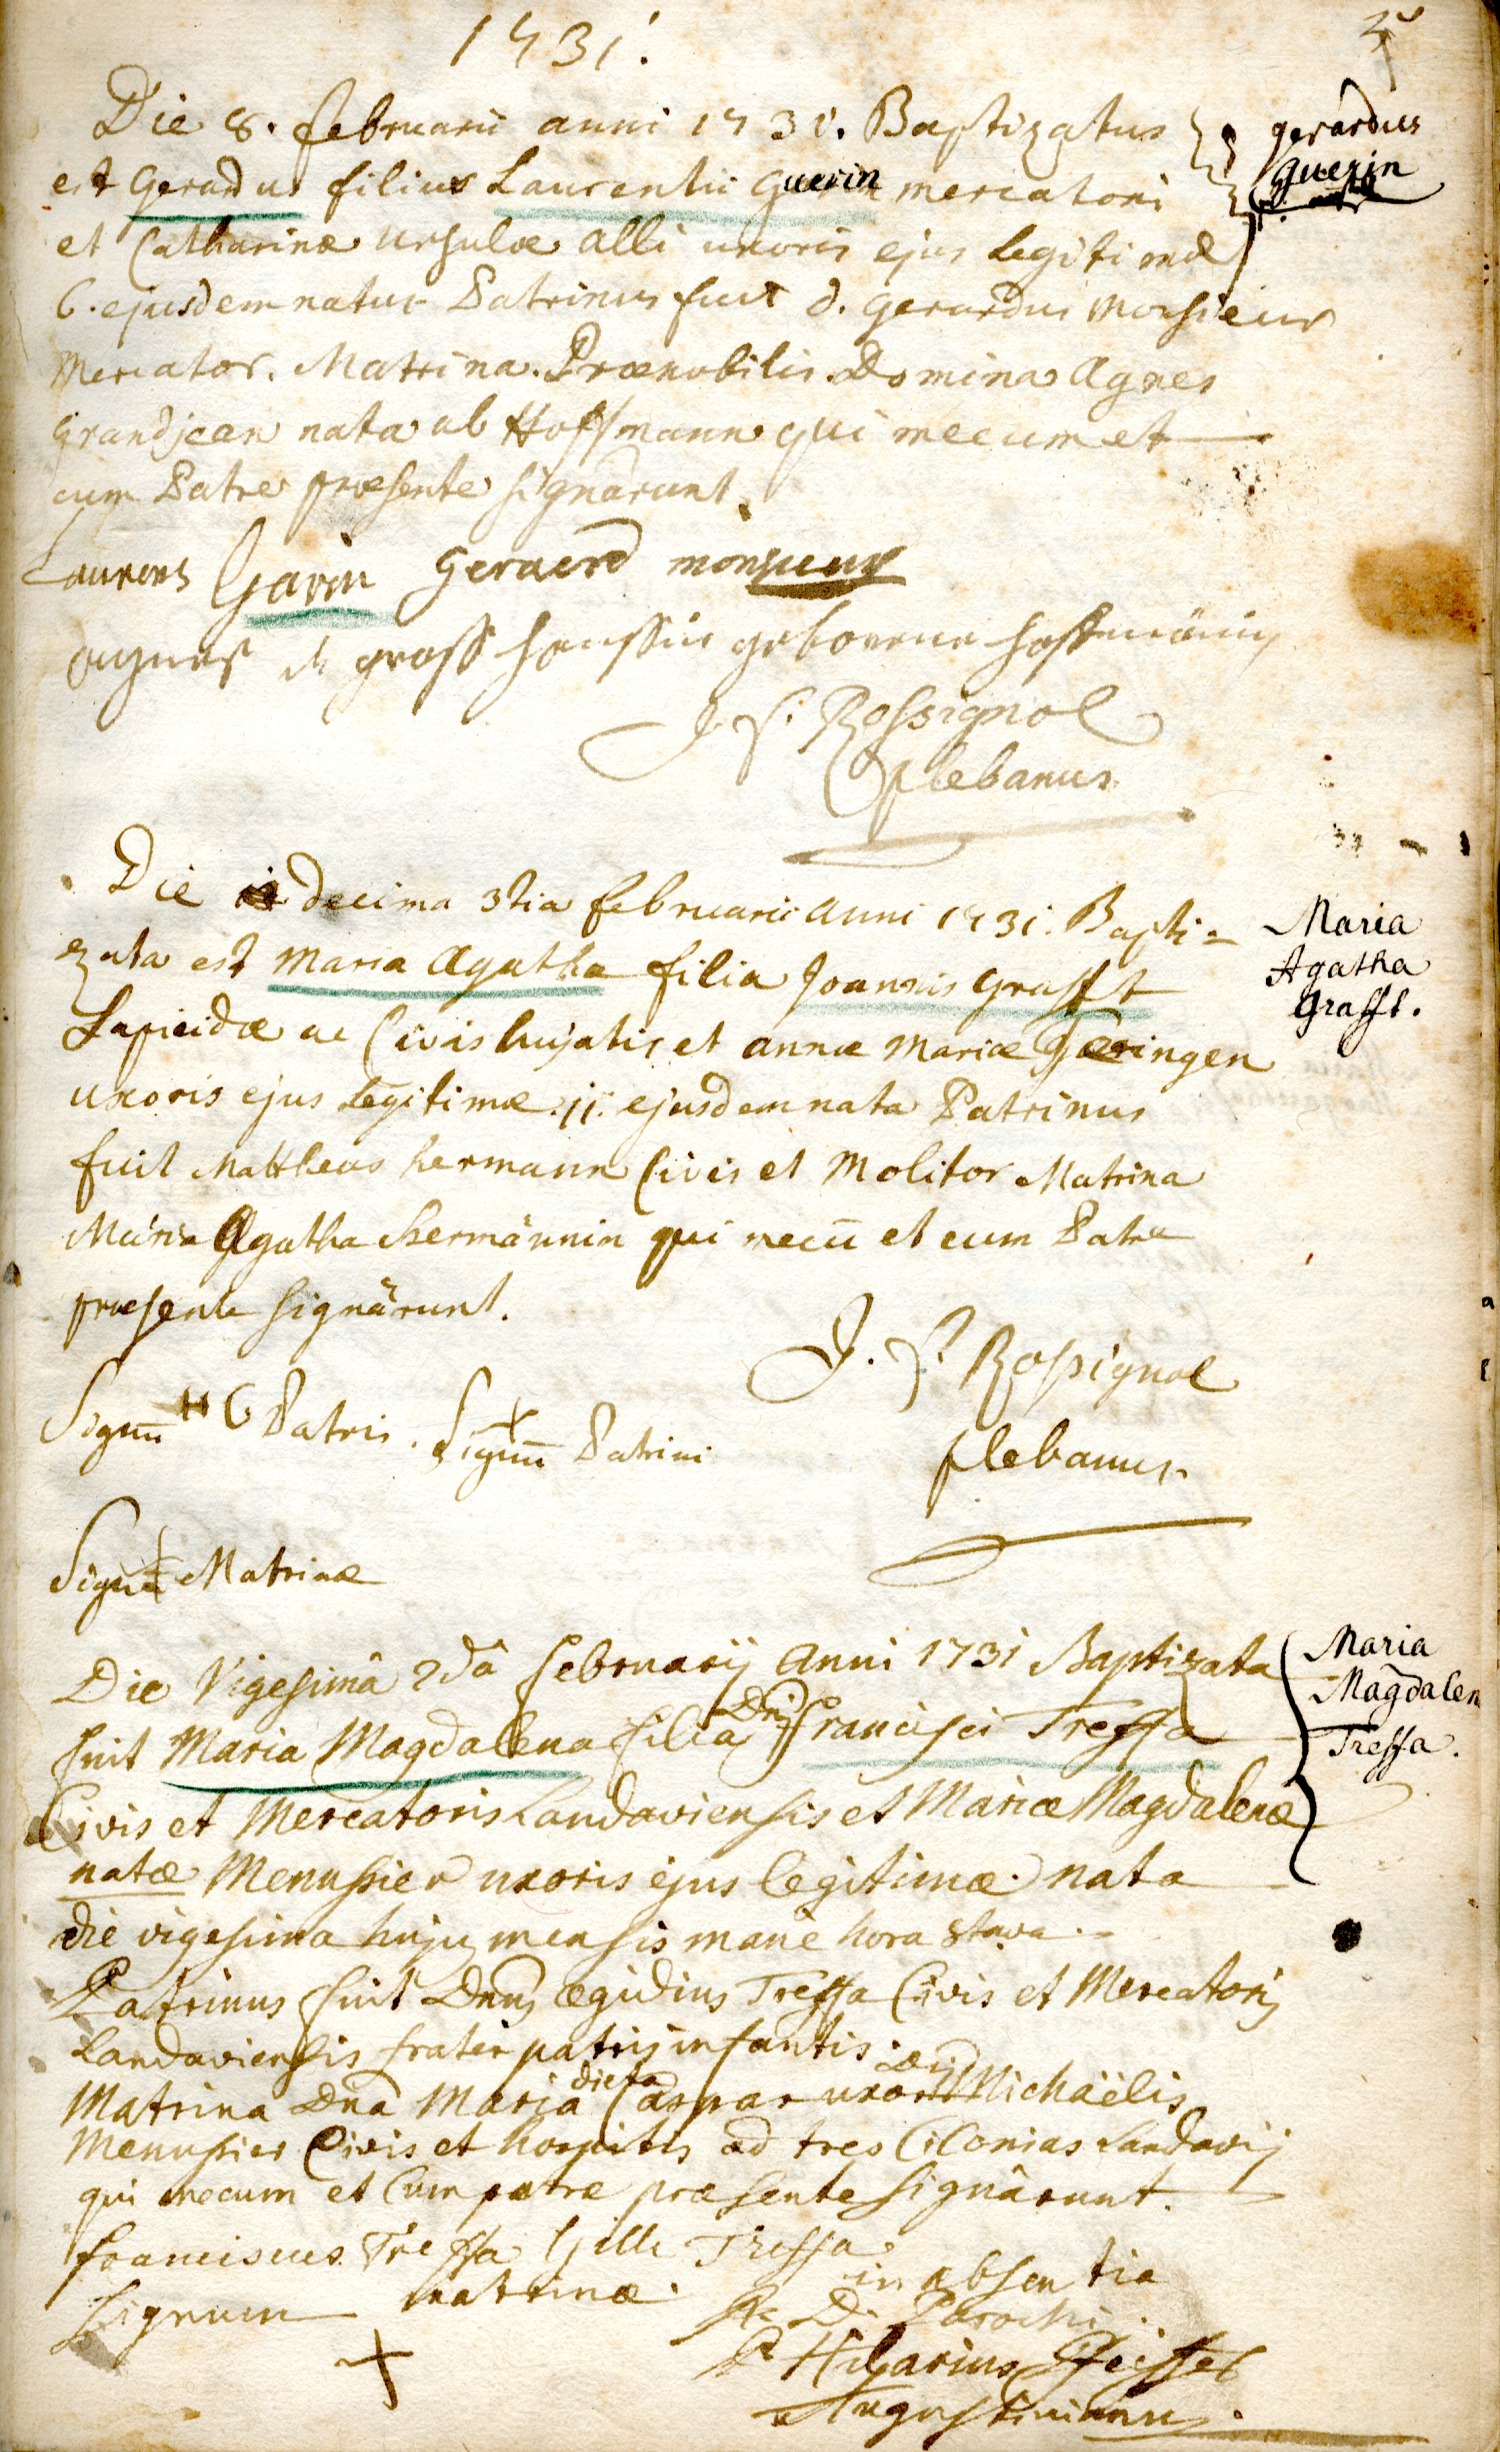 1731.
Die 8. februarii anni 1731. Baptizatus
gerardus
Guerin
est Gerardus filius Laurentii Guerin mercatoris
et Catharinæ Ursulæ Alli uxoris ejus legitimæ
6. ejusdem natus Patrinus fuit d. Gerardus Monsieur
Mercator. Matrina. Prænobilis. Domina Agnes
Grandjean nata ab Hoffmann qui mecum et
cum Patre præsente signarunt.
Laurens Garin Geraerd monsieur
agnes geborene hoffmänin
J. P. Rossignol
plebanus
Die decima 3tia februarii anni 1731. Bapti=
Maria
Agatha
Grafft.
zata est Maria Agatha filia Joannis Grafft
Lapicidæ ac Civis hujatis et annæ Mariæ Geringen
uxoris ejus legitimæ. 11. ejusdem nata Patrinus
fuit Mattheus hermann Civis et Molitor Matrina
Maria Agatha hermännin qui mecū et cum Patre
præsente signârunt.
J. P. Rossignol
plebanus.
Signū H G Patris. Signū Patrini
Signū Matrinæ
Die Vigesimâ 2dâ februarij Anni 1731 Baptizata
Maria
Magdalen
Treffa.
fuit Maria Magdalena filia Dnj Francisci Treffa
Civis et Mercatoris Landaviensis et Mariæ Magdalenæ
natæ Menussier uxoris ejus legitimæ. nata
die vigesima hujus mensis mane hora 8tava.
Patrinus fuit Dnus Ægidius Treffa Civis et Mercatoris
Landaviensis frater patris infantis.
Matrina Dna Maria dicta Caspar uxor Dni Michaëlis
Menussier Civis et hospitis ad tres Ciconias Landavij
qui mecum et cum patre præsente signârunt.
franciscus Treffa Gille Treffa
Signum matrinæ.
in absentia
R. D. Parochi
P. Hilarius Pfeiffer
Augustinianus.